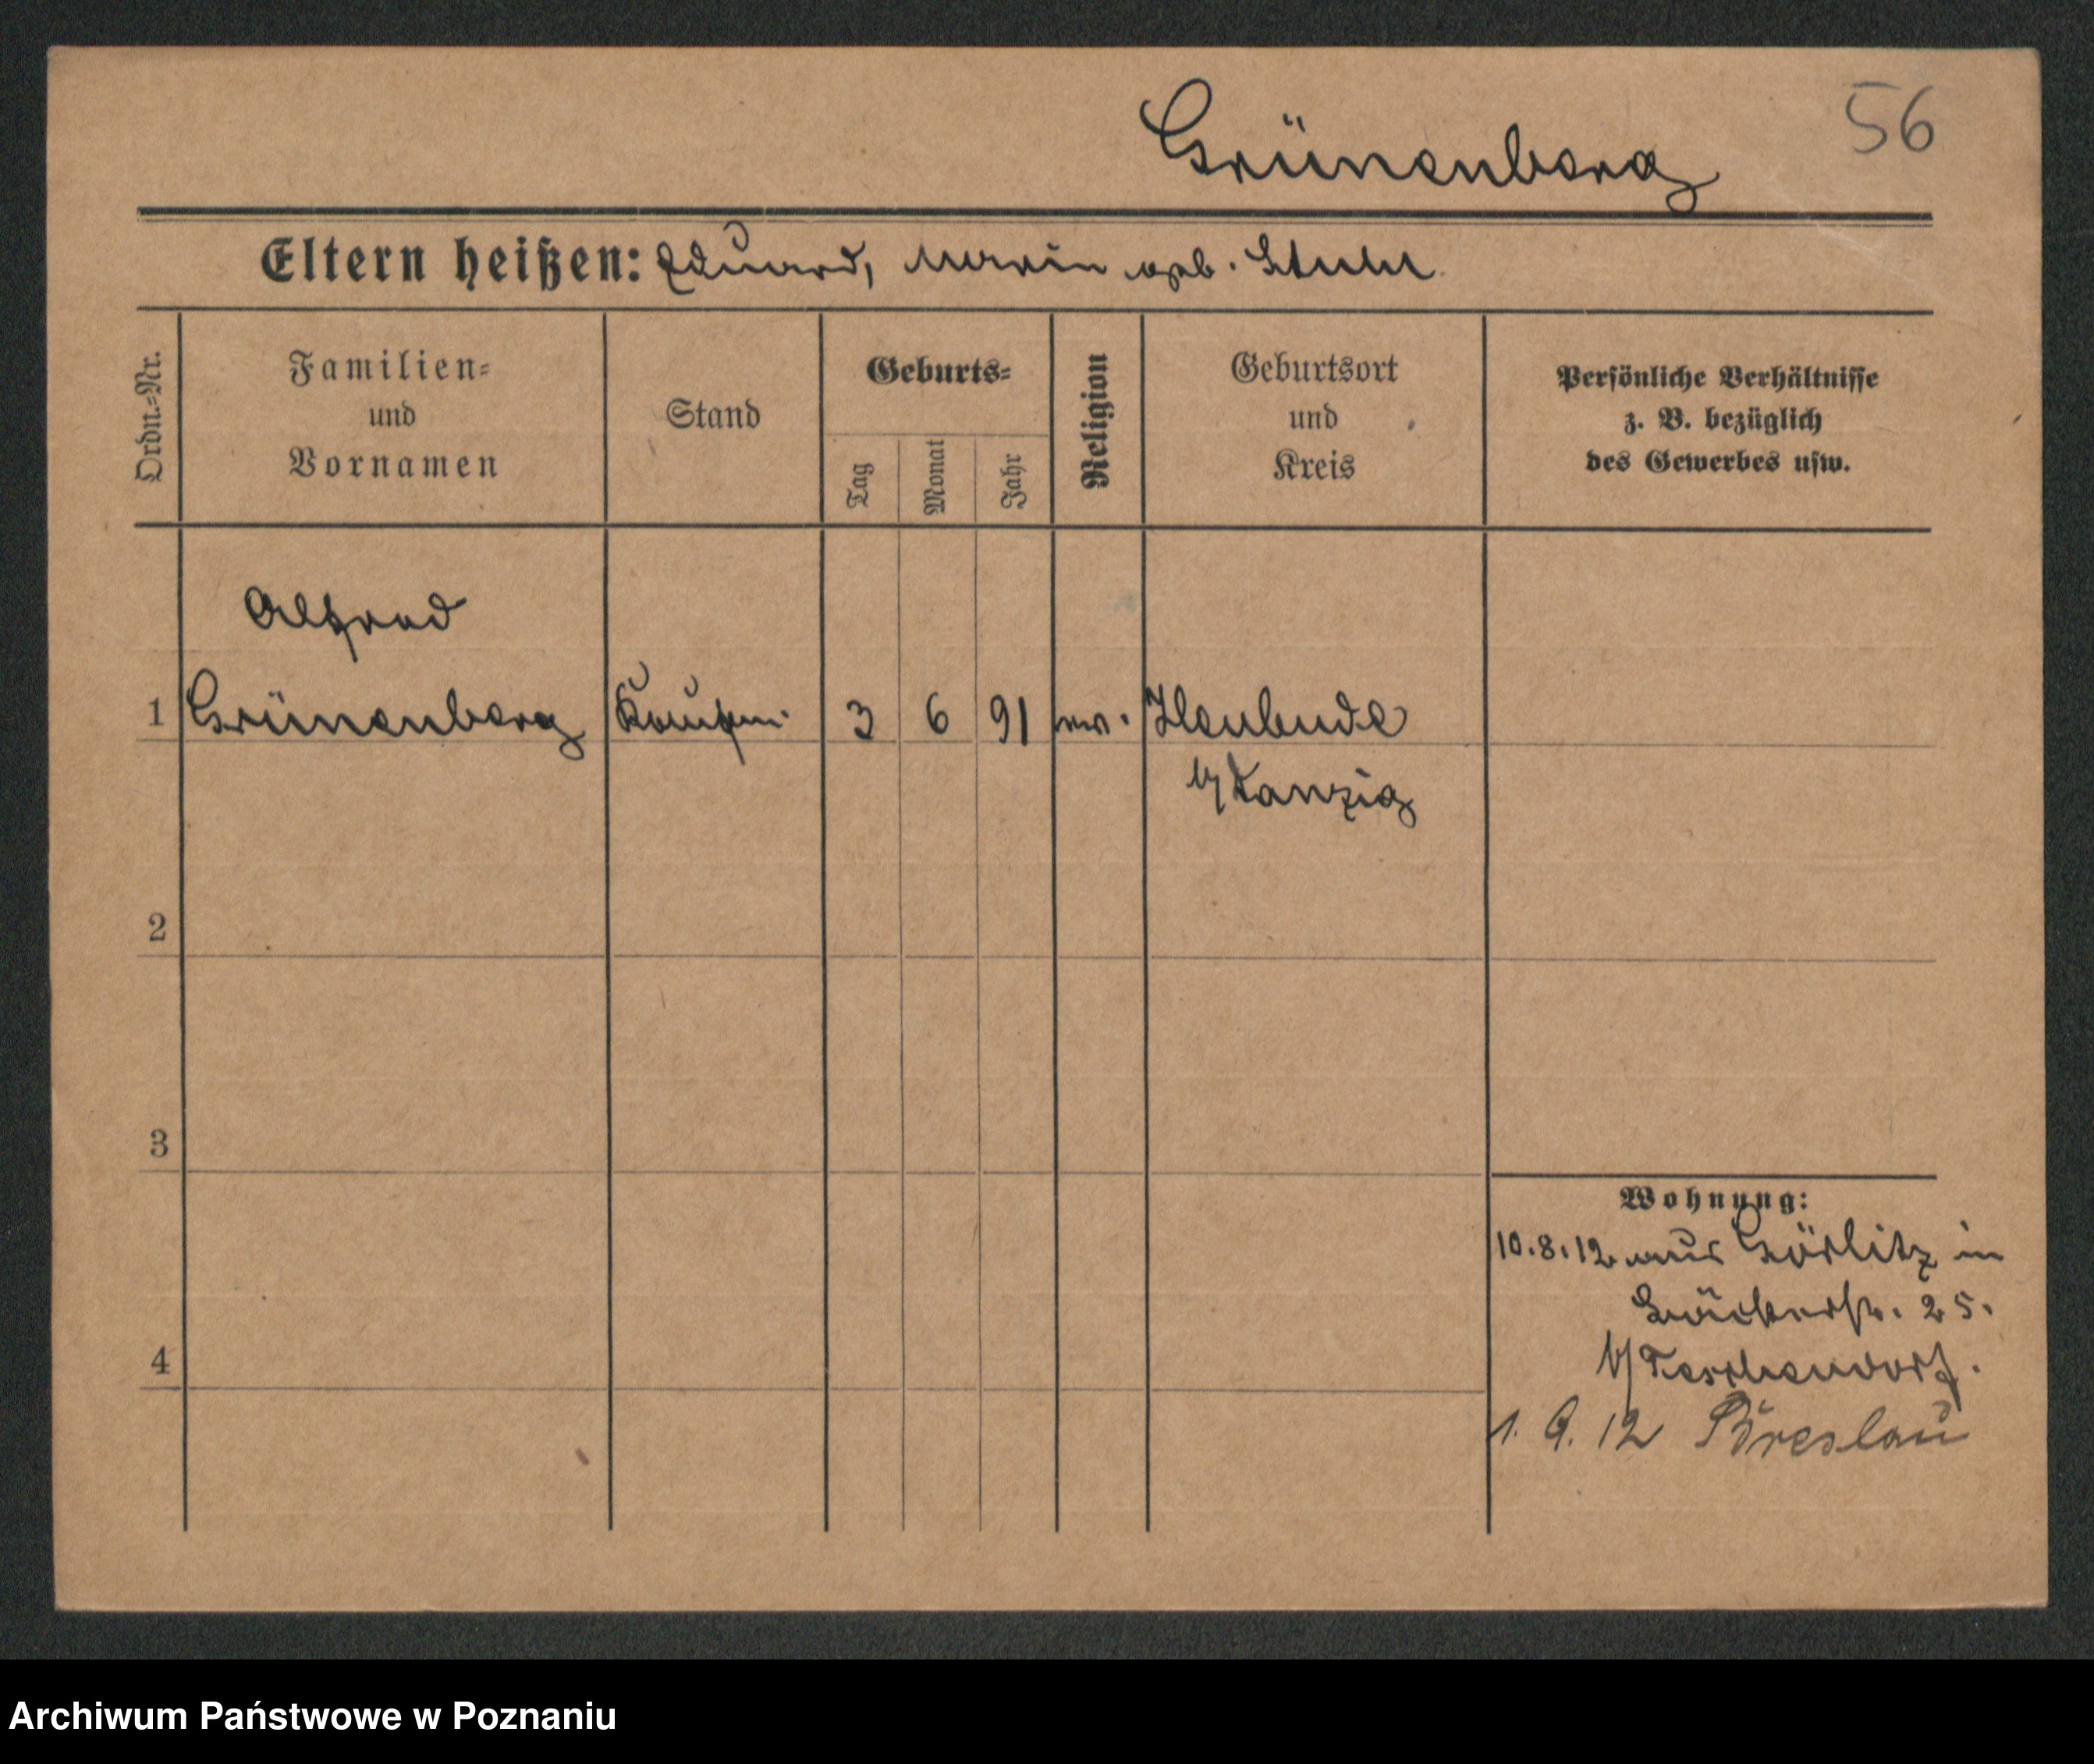 56
Grünenberg
Eltern heißen: Eduard, Marie geb. Stuhr
Ordn.-Nr.
Familien-
und
Vornamen
Stand
Geburts-
Tag
Monat
Jahr
Religion
Geburtsort
und
Kreis
Persönliche Verhältnisse
z. B. bezüglich
des Gewerbes usw.
Alfred
1 Grünenberg Kaufm. 3 6 91 ev. Heubude
b/Danzig
2
3
Wohnung:
10.8.12 aus Görlitz in
25.
4
b/Teschendorf.
1. 9. 12 Breslau
Archiwum Państwowe w Poznaniu